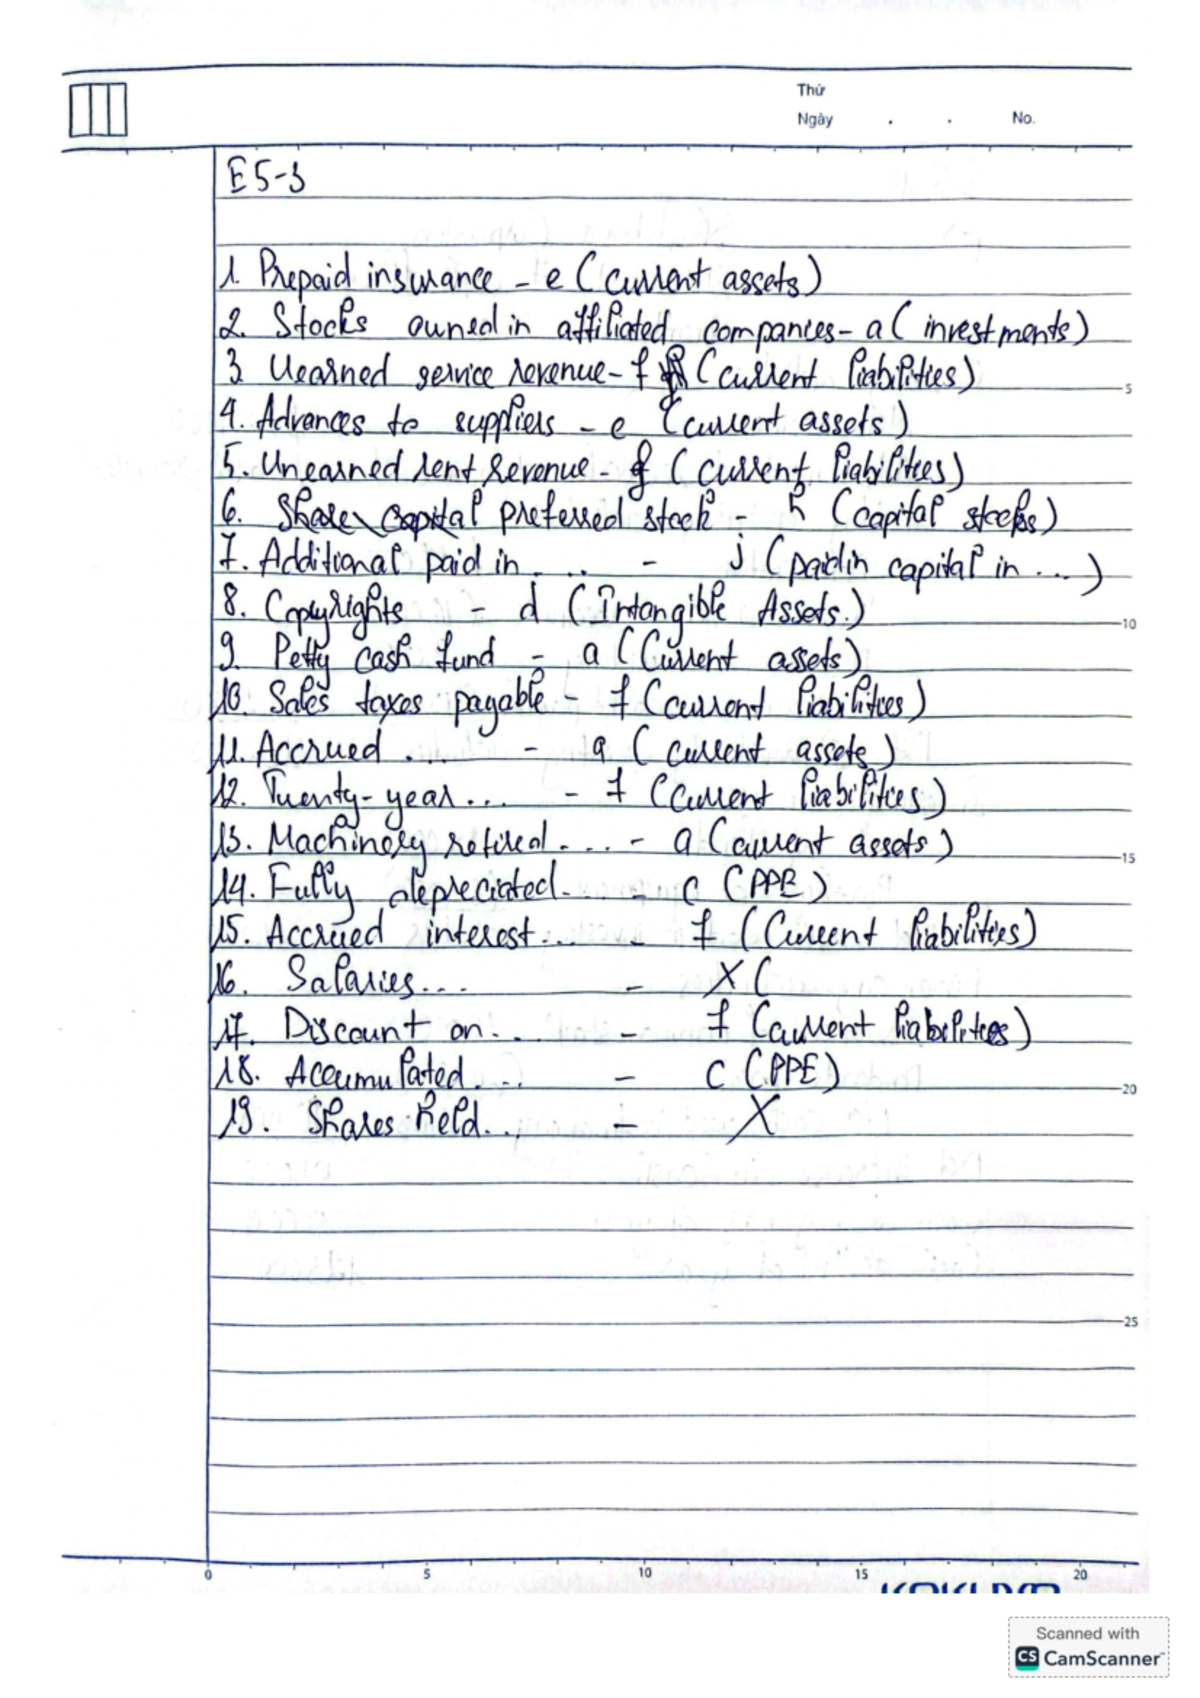 Thứ
Ngày . . No.
E5-3
1. Prepaid insurance - e (current assets)
2. Stocks owned in affiliated companies - a (investments)
3. Uearned service revenue - f (current liabilities)
4. Advances to suppliers - e (current assets)
5. Unearned rent revenue - f (current liabilities)
6. Share capital preferred stock - h (capital stocks)
7. Additional paid in .... - j (paidin capital in ...)
8. Copyrights - d (Intangible Assets.)
9. Petty cash fund - a (Current assets)
10. Sales taxes payable - f (current liabilities)
11. Accrued .... - a (current assets)
12. Twenty-year ... - f (Current liabilities)
13. Machinery retired .... - a (current assets)
14. Fully depreciated.. - c (PPE)
15. Accrued interest... - f (Current liabilities)
16. Salaries... - X (
17. Discount on.... - f (current liabilities)
18. Accumulated.... - c (PPE)
19. Shares held.... - X
5
10
15
20
25
0 5 10 15 20
Scanned with
CS CamScanner